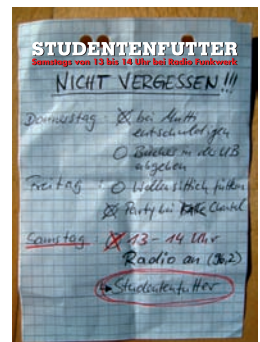 STUDENTENFUTTER
Samstags von 13 bis 14 Uhr bei Radio Funkwerk
NICHT VERGESSEN!!!
Donnerstag: bei Mutti
entschuldigen
Bücher in der UB
abgeben
Freitag: Wellensittich füttern
Party bei Chantal
Samstag: 13 - 14 Uhr
Radio an (96,2)
Studentenfutter